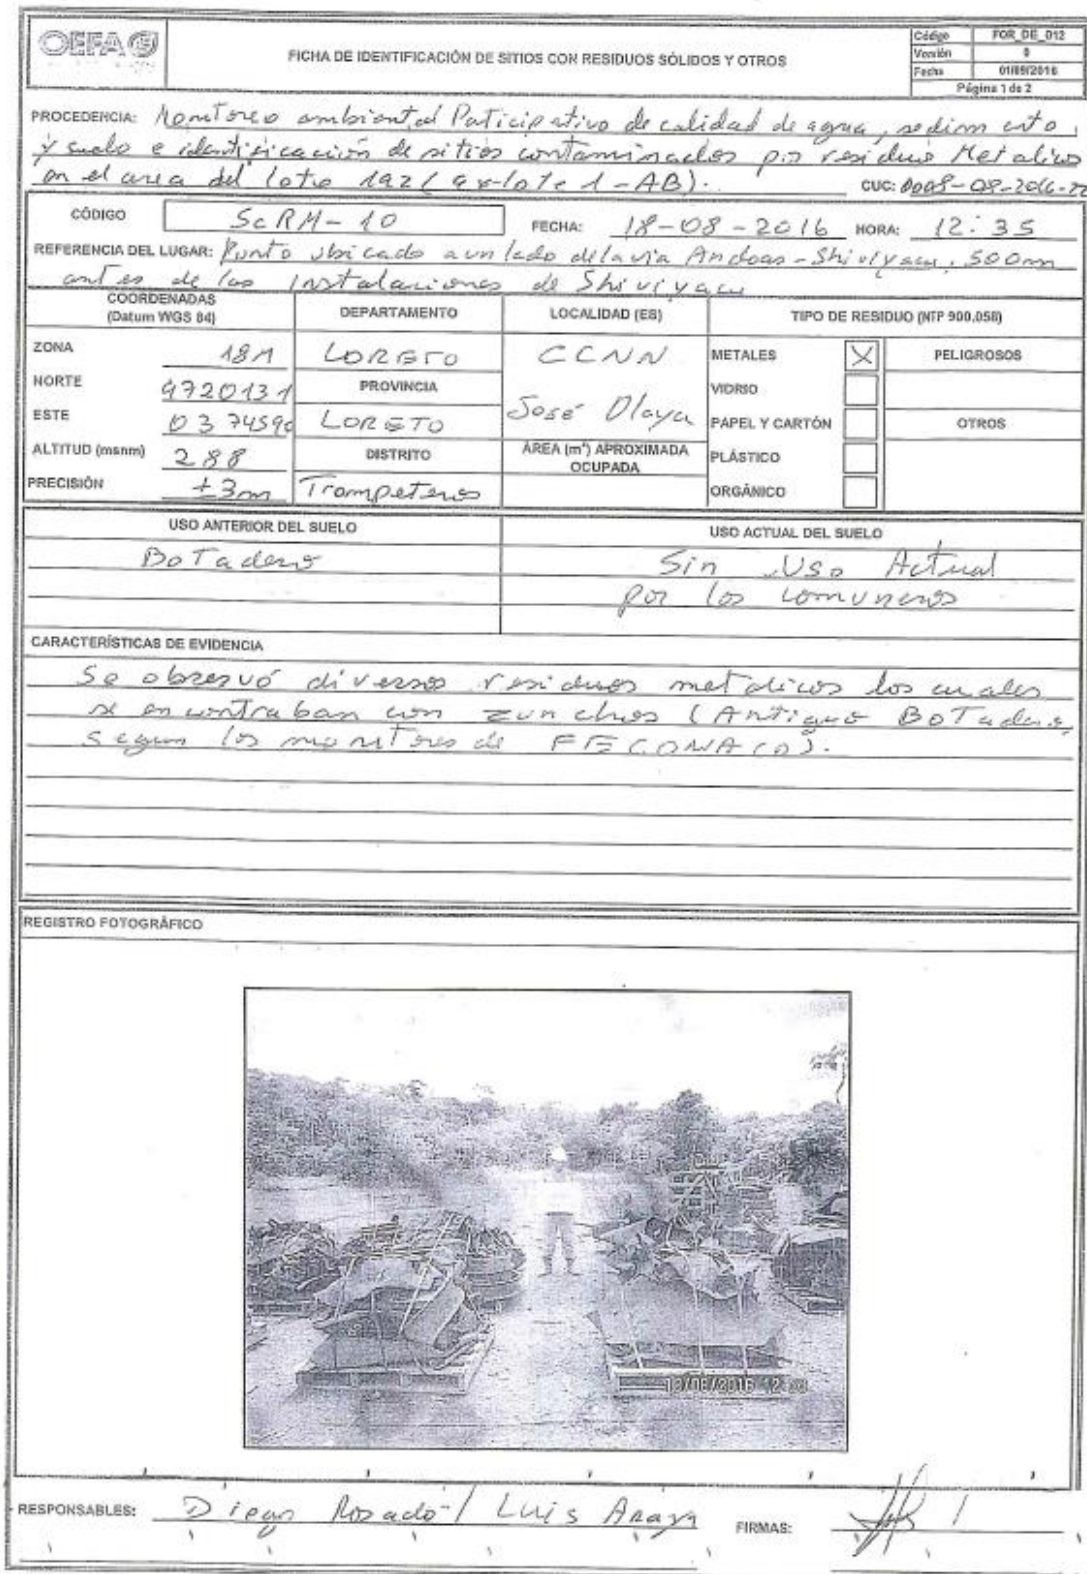 OEFA
FICHA DE IDENTIFICACIÓN DE SITIOS CON RESIDUOS SÓLIDOS Y OTROS
Código FOR_DE_012
Versión 0
Fecha 01/09/2016
Página 1 de 2
PROCEDENCIA: Monitoreo ambiental Paticipativo de calidad de agua, sedimento
y suelo e identificación de sitios contaminados por residuo Metalico
en el area del lote 192 (ex-lote 1-AB). CUC:
CÓDIGO ScRM-10 FECHA: 18-08-2016 HORA: 12:35
REFERENCIA DEL LUGAR: Punto ubicado a un lado de la via Andoas-Shiviyacu, 500m
antes de las Instalaciones de Shiviyacu
COORDENADAS (Datum WGS 84) DEPARTAMENTO LOCALIDAD (ES) TIPO DE RESIDUO (NTP 900.058)
ZONA 18M LORETO CCNN METALES X PELIGROSOS
NORTE 9720131 PROVINCIA VIDRIO
ESTE 0374590 LORETO José Olaya PAPEL Y CARTÓN OTROS
ALTITUD (msnm) 288 DISTRITO ÁREA (m²) APROXIMADA OCUPADA PLÁSTICO
PRECISIÓN ±3m Trompeteros ORGÁNICO
USO ANTERIOR DEL SUELO USO ACTUAL DEL SUELO
BoTadero Sin Uso Actual
por los comuneros
CARACTERÍSTICAS DE EVIDENCIA
Se obzervó diversos residuos metalicos los cuales
se encontraban con zunchos (Antiguo BoTadero,
segun los monitores de FECONACO).
REGISTRO FOTOGRÁFICO
RESPONSABLES: Diego Rosado / Luis FIRMAS: